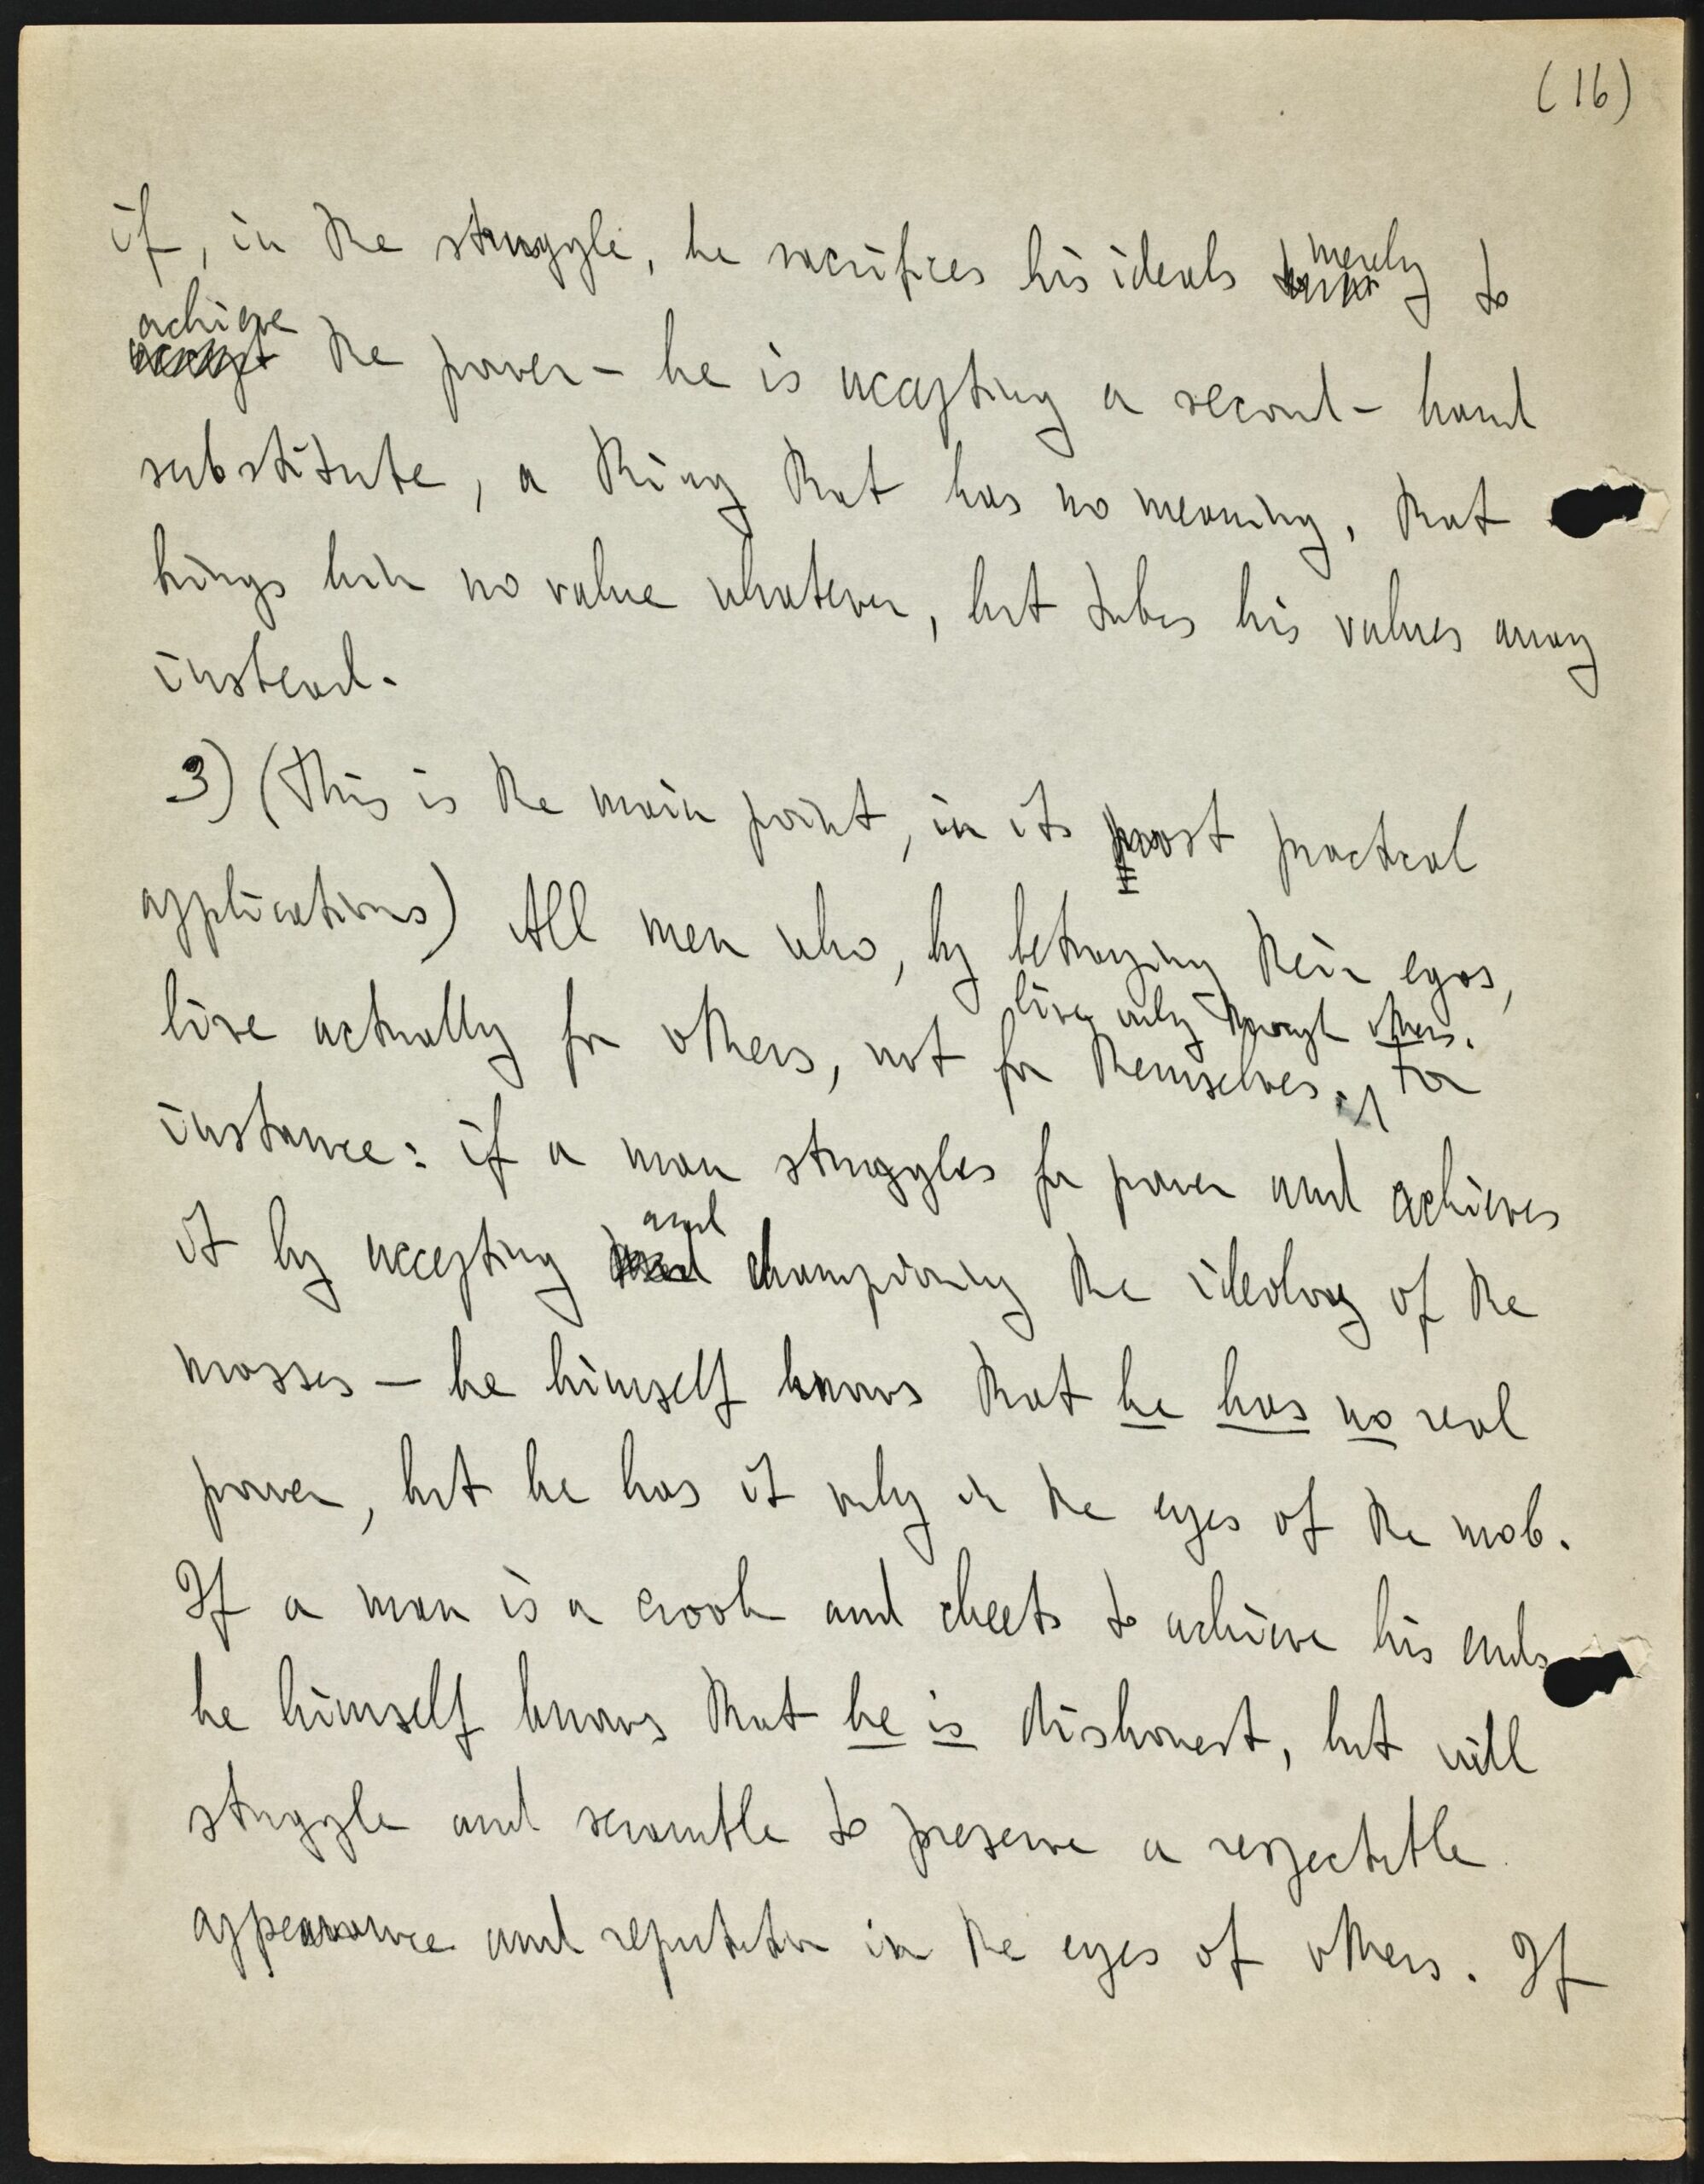 (16)
if, in the struggle, he sacrifices his ideals merely to
achieve the power – he is accepting a second-hand
substitute, a thing that has no meaning, that
brings him no value whatever, but takes his values away
instead.
3) (This is the main point, in its most practical
applications) All men who, by betraying their egos,
live actually for others, not for themselves, live only through others. For
instance: if a man struggles for power and achieves
it by accepting and championing the ideology of the
masses – he himself knows that he has no real
power, but he has it only in the eyes of the mob.
If a man is a crook and cheats to achieve his ends
he himself knows that he is dishonest, but will
struggle and scramble to preserve a respectable
appearance and reputation in the eyes of others. If